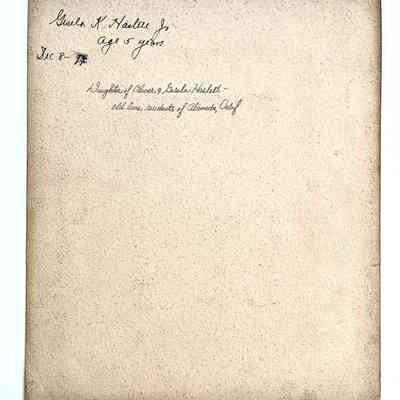 Gisela K. Haslett Jr
Age 5 years
Dec 8-
Daughter of Oliver & Gisela Haslett -
old time residents of Alameda, Calif